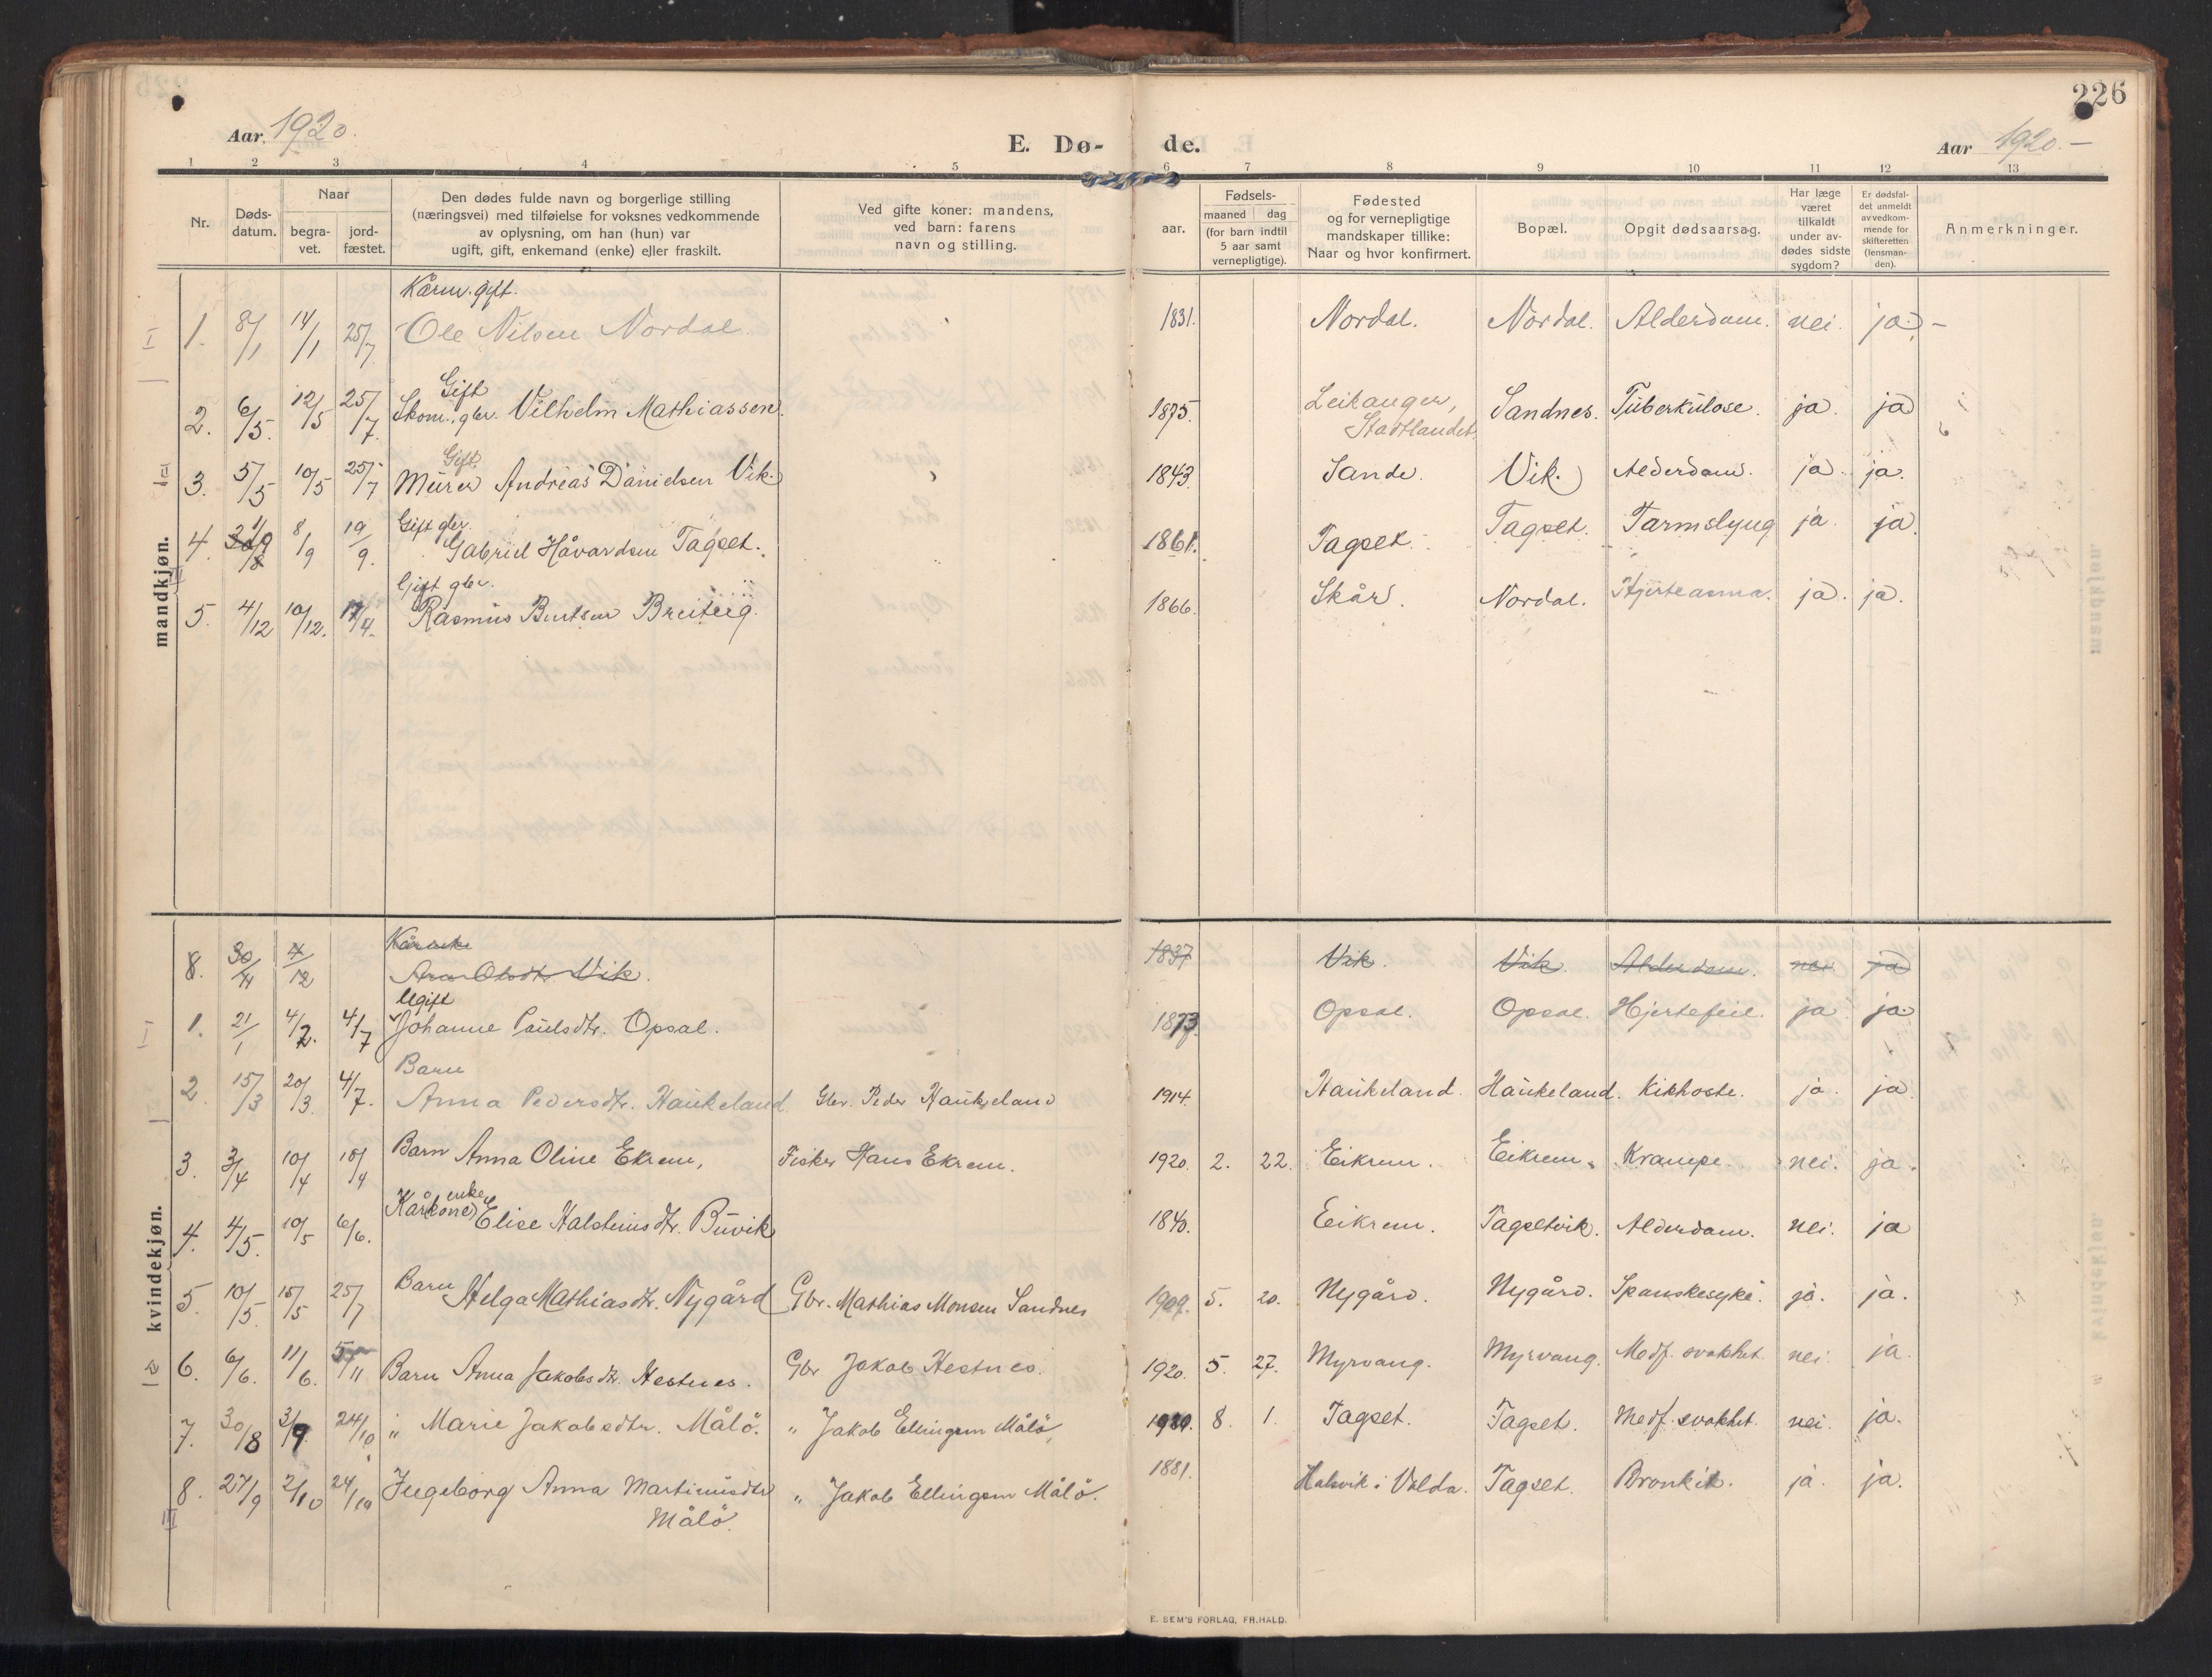 226
Aar 1920.
E. Dø- de.
Aar 1920.–
1 2 3 4 5 6 7 8 9 10 11 12 13
Nr.
Døds-
datum.
Naar
begra-
vet.
jord-
fæstet.
Den dødes fulde navn og borgerlige stilling
(næringsvei) med tilføielse for voksnes vedkommende
av oplysning, om han (hun) var
ugift, gift, enkemand (enke) eller fraskilt.
Ved gifte koner: mandens,
ved barn: farens
navn og stilling.
aar.
Fødsels-
maaned dag
(for barn indtil
5 aar samt
vernepligtige).
Fødested
og for vernepligtige
mandskaper tillike:
Naar og hvor konfirmert.
Bopæl.
Opgit dødsaarsag.
Har læge
været
tilkaldt
under av-
dødes sidste
sygdom?
Er dødsfal-
det anmeldt
av vedkom-
mende for
skifteretten
(lensman-
den).
Anmerkninger.
mandkjøn.
Kårm. gift.
1. 8/1 14/1 25/7 Ole Nilsen Nordal. 1831. Nordal. Nordal. Alderdom. nei. ja. –
Gift
2. 6/5. 12/5 25/7. Skom., gbr. Vilhelm Mathiassen. 1875. Leikanger, Stadtlandet. Sandnes. Tuberkulose. ja. ja
Gift.
3. 5/5 10/5 25/7 Murer Andreas Danielsen Vik. 1843. Sande. Vik. Alderdom. ja. ja.
Gift gbr.
4. 1/9 8/9 19/9. Gabriel Håvardsen Tagset. 1861. Tagset. Tagset. Tarmslyng ja. ja
Gift gbr.
5. 4/12 10/12. 17/4. Rasmus Bentsen Breiteig. 1866. Skår. Nordal. Hjerteasma. ja. ja.
kvindekjøn.
Kårenke
8. 30/11 4/12 Ana Olsdtr. Vik. 1837 Vik. Vik. Alderdom. nei ja
Ugift
1. 21/1 4/2. 4/7 Johanne Paulsdtr. Opsal. 1873. Opsal. Opsal. Hjertefeil. ja ja.
Barn
2. 15/3 20/3. 4/7. Anna Pedersdtr. Haukeland. Gbr. Peder Haukeland 1914. Haukeland. Haukeland. Kikhoste. ja. ja
3. 3/4 10/4 10/4 Barn Anna Oline Ekrem, Fisker Hans Ekrem. 1920. 2. 22. Eikrem. Eikrem. Krampe. nei. ja.
enke
4. 4/5. 10/5 6/6. Kår(kone) Elise Halsteinsdtr. Buvik 1840. Eikrem. Tagsetvik. Alderdom. nei. ja
5. 10/5. 15/5 25/7 Barn Helga Mathiasdtr. Nygård Gbr. Mathias Monsen Sandnes 1909. 5. 20. Nygård. Nygård. Spanskesyke. ja. ja.
6. 6/6. 11/6. 5/11 Barn Anna Jakobsdtr. Hestnes. Gbr Jakob Hestnes. 1920. 5. 27. Myrvang. Myrvang. Medf. svakhet. nei. ja.
7. 30/8 3/9. 24/10 " Marie Jakobsdtr. Målö. " Jakob Ellingsen Målö, 1920. 8. 1. Tagset. Tagset. Medf. svakhet. nei. ja.
8. 27/9 2/10 24/10 Ingeborg Anna Martinusdtr " Jakob Ellingsen Målö. 1881. Halsvik i Volda. Tagset. Bronkit. ja. ja.
Målö.
E. SEM'S FORLAG, FR.HALD.